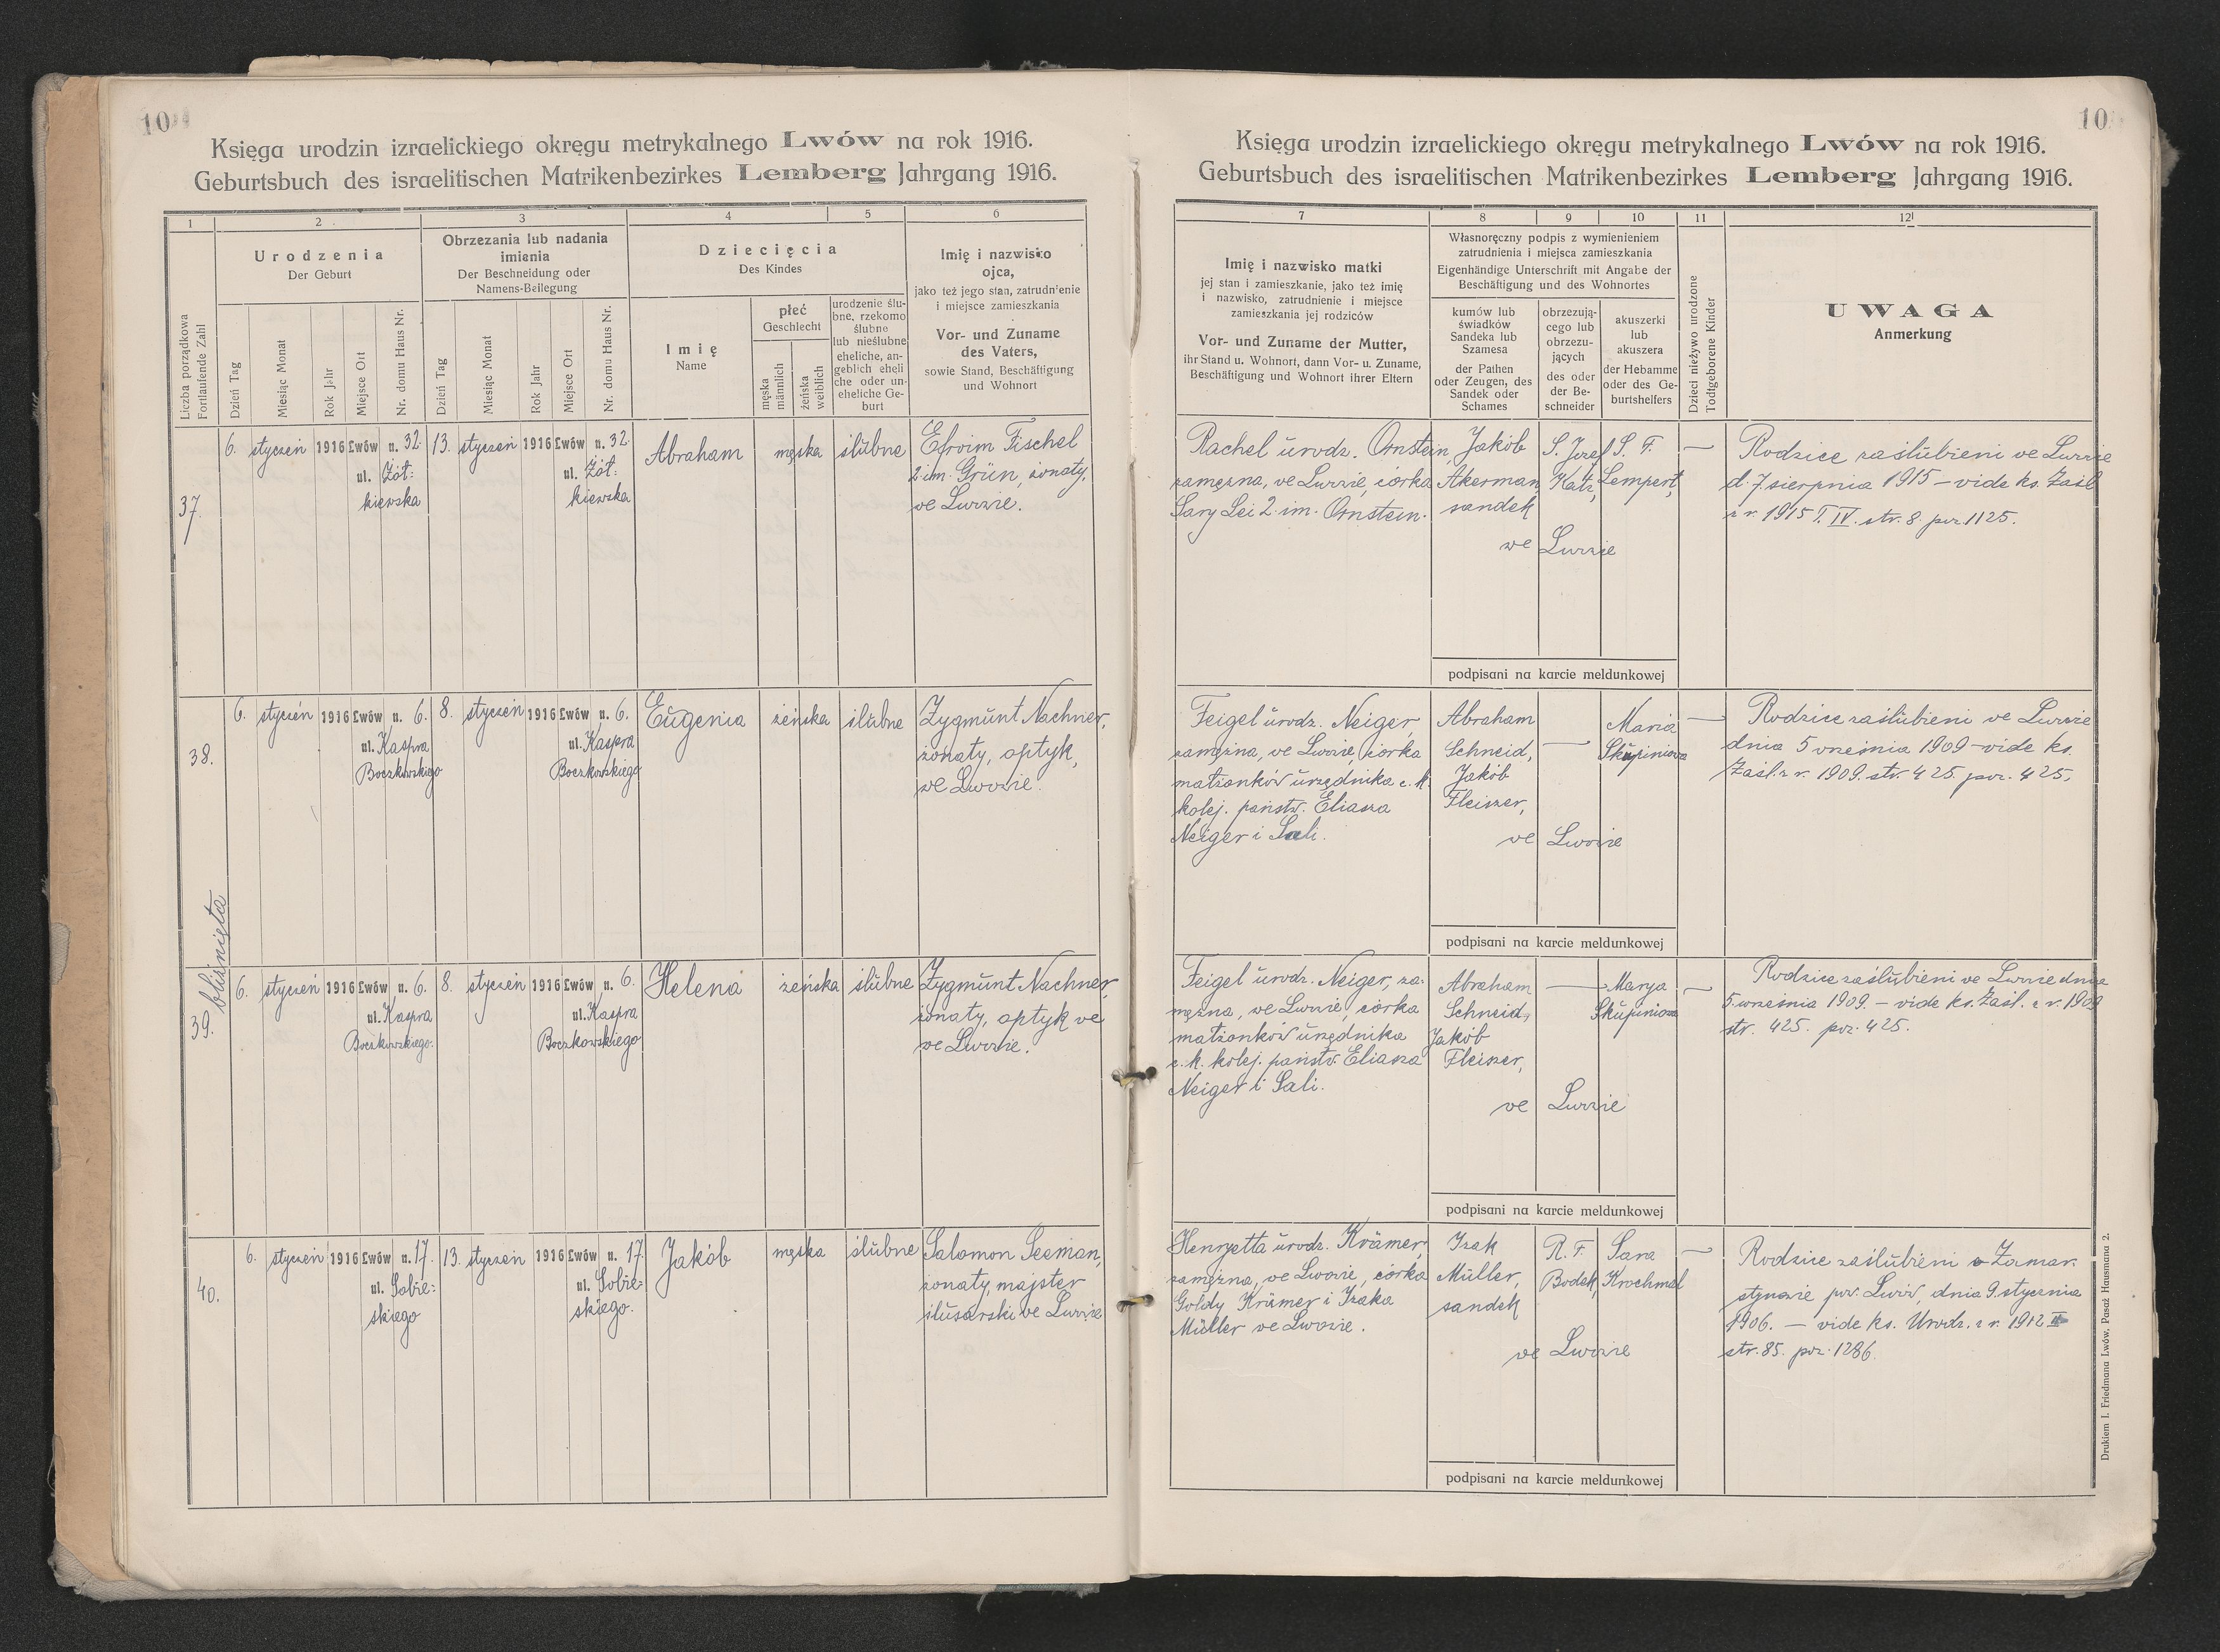 10
Księga urodzin izraelickiego okręgu metrykalnego Lwów na rok 1916.
Geburtsbuch des israelitischen Matrikenbezirkes Lemberg Jahrgang 1916.
1 2 3 4 5 6
Liczba porządkowa
Fortlaufende Zahl
Urodzenia
Der Geburt
Dzień Tag
Miesiąc Monat
Rok Jahr
Miejsce Ort
Nr. domu Haus Nr.
Obrzezania lub nadania
imienia
Der Beschneidung oder
Namens-Beilegung
Dzień Tag
Miesiąc Monat
Rok Jahr
Miejsce Ort
Nr. domu Haus Nr.
Dziecięcia
Des Kindes
Imię
Name
płeć
Geschlecht
męska
männlich
żeńska
weiblich
urodzenie ślu-
bne, rzekomo
ślubne
lub nieślubne
eheliche, an-
geblich eheli
che oder un-
eheliche Ge-
burt
Imię i nazwisko
ojca,
jako też jego stan, zatrudnienie
i miejsce zamieszkania
Vor- und Zuname
des Vaters,
sowie Stand, Beschäftigung
und Wohnort
37.
6. styczeń 1916 Lwów n. 32.
ul. Żół:
kiewska
13. styczeń 1916 Lwów n. 32.
ul. Żół:
kiewska
Abraham
męska
ślubne
Efroim Fischel
2. im. Grün, żonaty,
we Lwowie.
38.
6. styczeń 1916 Lwów n. 6.
ul. Kaspra
Boczkowskiego
8. styczeń 1916 Lwów n. 6.
ul. Kaspra
Boczkowskiego
Eugenia
żeńska
ślubne
Zygmunt Nachner,
żonaty, optyk,
we Lwowie.
bliźnięta
39.
6. styczeń 1916 Lwów n. 6.
ul. Kaspra
Boczkowskiego.
8. styczeń 1916 Lwów n. 6.
ul. Kaspra
Boczkowskiego
Helena
żeńska
ślubne
Zygmunt Nachner,
żonaty, optyk we
we Lwowie.
40.
6. styczeń 1916 Lwów n. 17.
ul. Sobie:
skiego
13. styczeń 1916 Lwów n. 17.
ul. Sobie:
skiego.
Jakób
męska
ślubne
Salamon Seeman,
żonaty, majster
ślusarski we Lwowie
10
Księga urodzin izraelickiego okręgu metrykalnego Lwów na rok 1916.
Geburtsbuch des israelitischen Matrikenbezirkes Lemberg Jahrgang 1916.
7 8 9 10 11 12
Imię i nazwisko matki
jej stan i zamieszkanie, jako też imię
i nazwisko, zatrudnienie i miejsce
zamieszkania jej rodziców
Vor- und Zuname der Mutter,
ihr Stand u. Wohnort, dann Vor- u. Zuname,
Beschäftigung und Wohnort ihrer Eltern
Własnoręczny podpis z wymienieniem
zatrudnienia i miejsca zamieszkania
Eigenhändige Unterschrift mit Angabe der
Beschäftigung und des Wohnortes
kumów lub
świadków
Sandeka lub
Szamesa
der Pathen
oder Zeugen, des
Sandek oder
Schames
obrzezują-
cego lub
obrzezu-
jących
des oder
der Be-
schneider
akuszerki
lub
akuszera
der Hebamme
oder des Ge-
burtshelfers
Dzieci nieżywo urodzone
Todtgeborene Kinder
UWAGA
Anmerkung
Rachel urodz. Ornstein,
zamężna, we Lwowie, córka
Sary Lei 2. im. Ornstein.
Jakób
Akerman,
sandek
S. Józef
Katz,
S. F.
Lempert,
we Lwowie
—
Rodzice zaślubieni we Lwowie
d. 7. sierpnia 1915 — vide ks. Zaśl
z r. 1915 T. IV. str. 8. poz. 1125.
podpisani na karcie meldunkowej
Feigel urodz. Neiger,
zamężna, we Lwowie, córka
małżonków urzędnika c. k.
kolej. państw. Eliasza
Neiger i Sali.
Abraham
Schneid,
Jakób
Fleiszer,
—
Maria
Skupniowa
we Lwowie
—
Rodzice zaślubieni we Lwowie
dnia 5 września 1909 – vide ks.
Zaśl. z r. 1909. str. 425. poz. 425.
podpisani na karcie meldunkowej
Feigel urodz. Neiger, za-
mężna, we Lwowie, córka
małżonków urzędnika
c. k. kolej. państw. Eliasza
Neiger i Sali.
Abraham
Schneid,
Jakób
Fleiszer,
—
Marya
we Lwowie
—
Rodzice zaślubieni we Lwowie dnia
5. września 1909. – vide ks. Zaśl. z r. 1909
str. 425. poz. 425.
podpisani na karcie meldunkowej
Henryetta urodz. Krämer,
zamężna, we Lwowie, córka
Goldy Krämer i Izaka
Müller we Lwowie.
Izak
Müller,
sandek
R. F
Bodek,
Sara
Krochmal
we Lwowie
—
Rodzice zaślubieni w Zamar.
stynowie pow. Lwów, dnia 9. stycznia
1906. — vide ks. Urodz. z r. 1912 II
str. 85. poz. 1286.
podpisani na karcie meldunkowej
Drukiem I. Friedmana Lwów, Pasaż Hausmana 2.